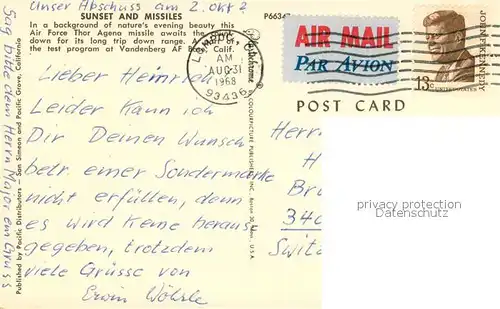 Unser Abschuss am 2. okt 2
SUNSET AND MISSILES
P6634
In a background of nature's evening beauty this
Air Force Thor Agena missile awaits the count
down for its long trip down range.
the test program at Vandenberg AF Base, Calif.
LOMPOC
AM
AUG 31
1968
93436
AIR MAIL
PAR AVION
JOHN F. KENNEDY
13c
UNITED STATES
POST CARD
Lieber Heinrich
Leider kann ich
Dir Deinen Wunsch
betr. einer Sondermarke
nicht erfüllen, denn
es wird keine herause
gegeben, trotzdem
viele Grüsse von
Erwin Wöhrle
Herr
H
Br
340
Switz
Sag bitte dem Herrn Major ein Gruss
Published by Pacific Distributors — San Simeon and Pacific Grove, California
COLOURPICTURE PUBLISHERS, INC., Boston 30, Mass., U.S.A.
privacy protection
Datenschutz